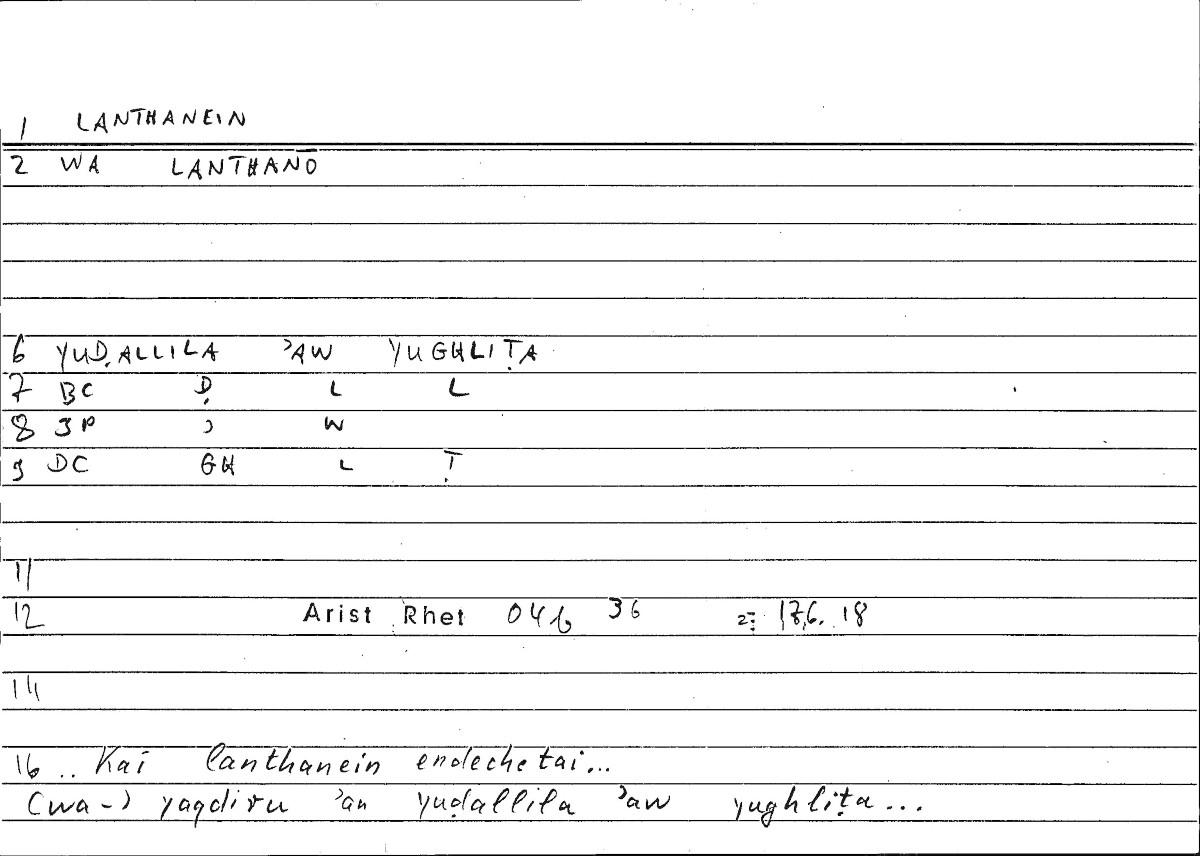 1 LANTHANEIN
2 WA LANTHANŌ
6 YUḌALLILA ʾAW YUGHLIṬA
7 BC Ḍ L L
8 3P ʾ W
9 DC GH L Ṭ
11
12 Arist Rhet 04b 36 = 176. 18
14
16 .. Kai lanthanein endechetai...
(wa-) yaqdiru ʾan yuḍallila ʾaw yughliṭa...